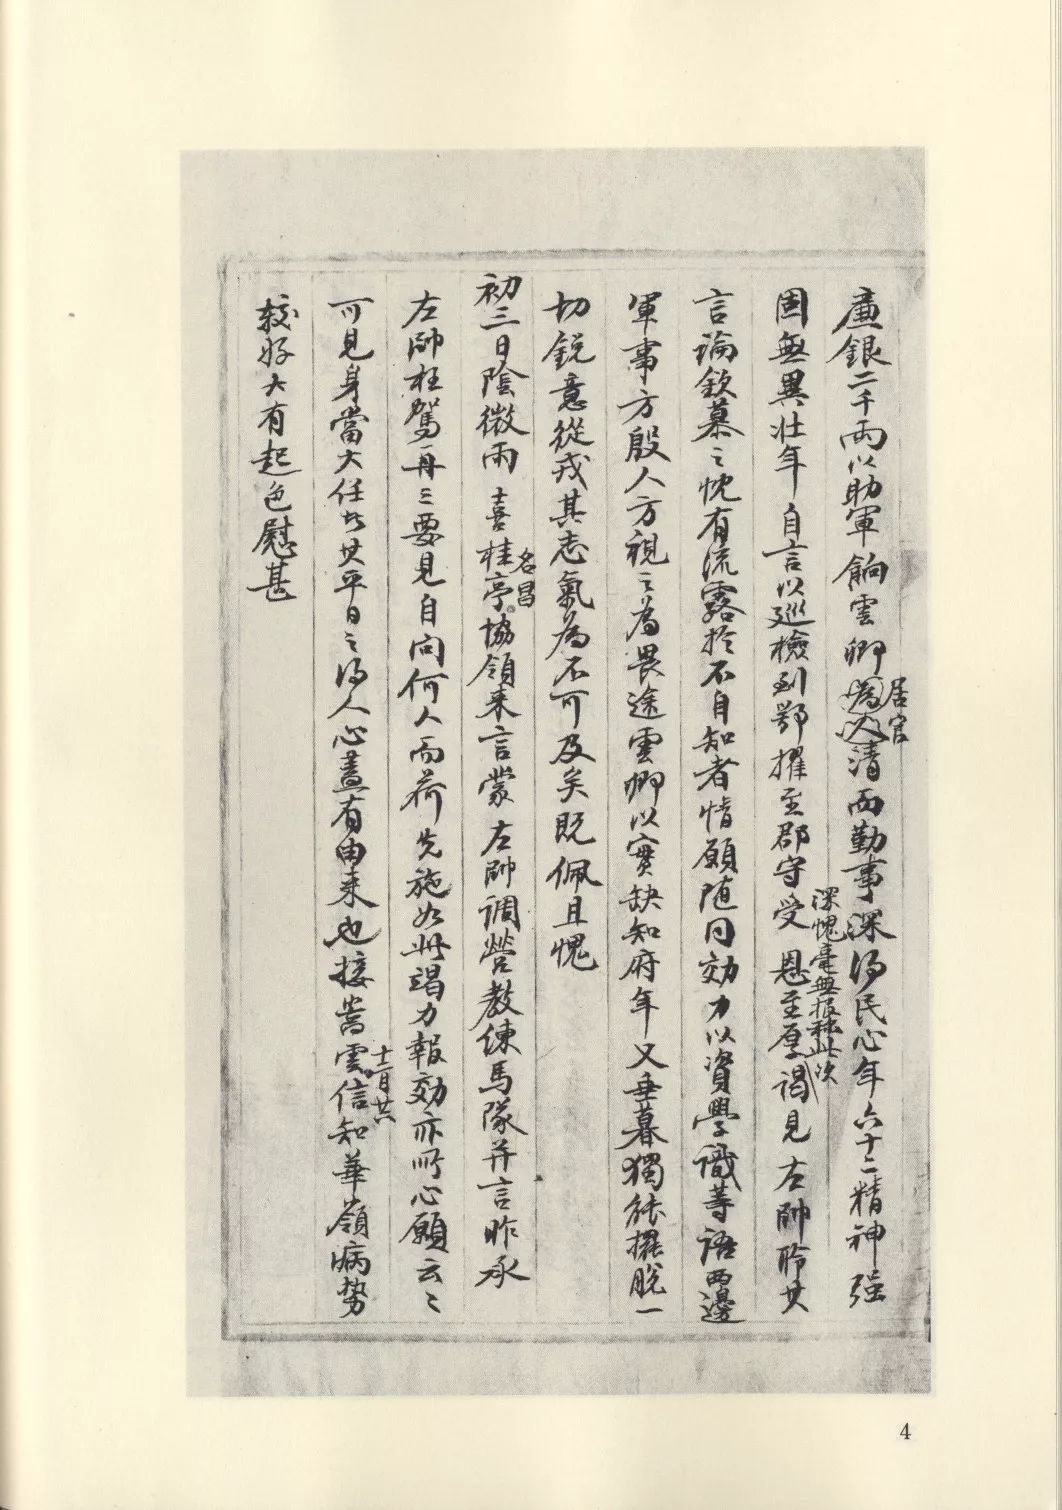 廉銀二千兩以助軍餉雲卿居官為人清而勤事深得民心年六十二精神强
固無異壯年自言以巡檢到鄂擢至郡守受恩至厚深愧毫無報稱此次謁見左帥聆其
言論欽慕之忱有流露於不自知者情願随同効力以資學識等語西邊
軍事方殷人方視之為畏途雲卿以實缺知府年又垂暮獨能擺脫一
切銳意從戎其志氣為不可及矣既佩且愧
初三日陰微雨喜桂亭名昌協領來言蒙左帥調營教練馬隊并言昨承
左帥枉駕再三要見自問何人而荷先施如此竭力報効亦所心願云云
可見身當大任者其平日之得人心蓋有由来也接嵩雲十二月廿六信知華嶺病勢
較好大有起色慰甚
4